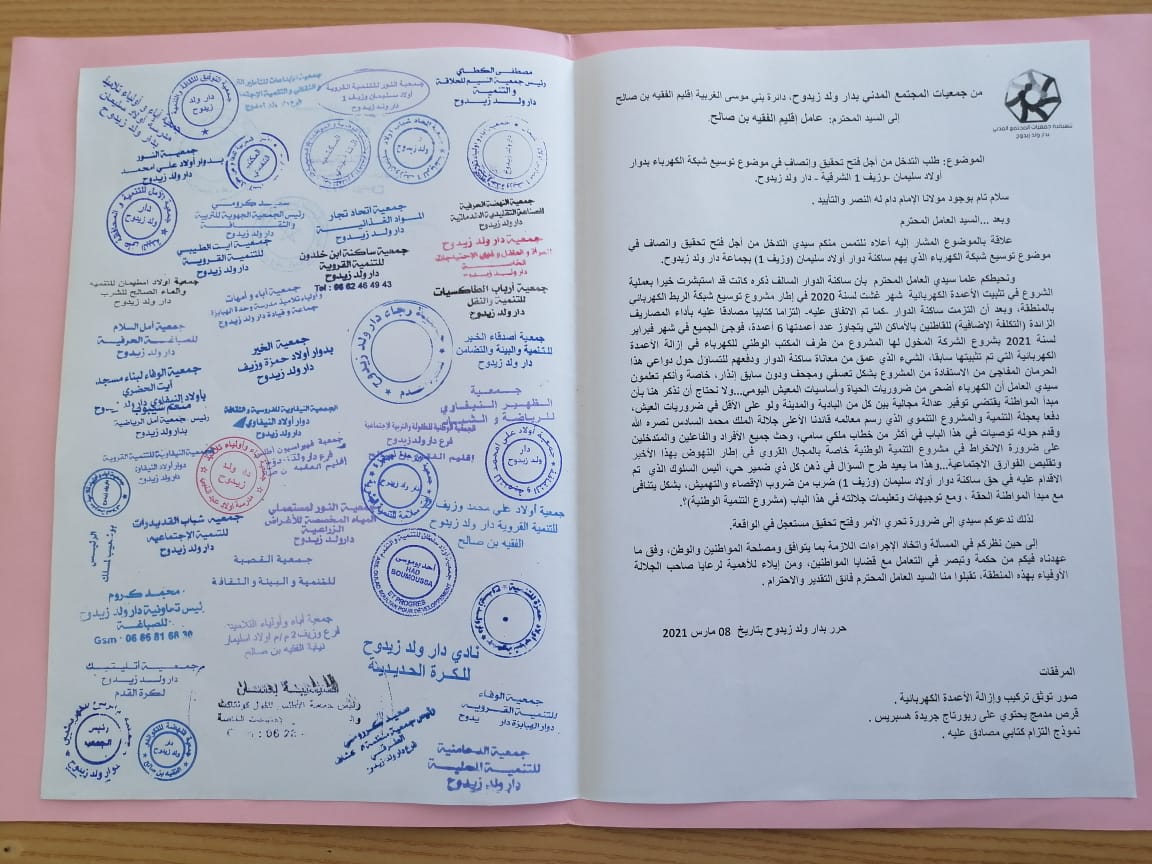 تنسيقية جمعيات المجتمع المدني
بدار ولد زيدوح
من جمعيات المجتمع المدني بدار ولد زيدوح، دائرة بني موسى الغربية إقليم الفقيه بن صالح
إلى السيد المحترم: عامل إقليم الفقيه بن صالح.
الموضوع: طلب التدخل من أجل فتح تحقيق وإنصاف في موضوع توسيع شبكة الكهرباء بدوار
أولاد سليمان -وزيف 1 الشرقية - دار ولد زيدوح.
سلام تام بوجود مولانا الإمام دام له النصر والتأييد .
وبعد ...السيد العامل المحترم
علاقة بالموضوع المشار إليه أعلاه نلتمس منكم سيدي التدخل من أجل فتح تحقيق وإنصاف في
موضوع توسيع شبكة الكهرباء الذي يهم ساكنة دوار أولاد سليمان (وزيف 1) بجماعة دار ولد زيدوح.
ونحيطكم علما سيدي العامل المحترم بأن ساكنة الدوار السالف ذكره كانت قد استبشرت خيرا بعملية
الشروع في تثبيت الأعمدة الكهربائية شهر غشت لسنة 2020 في إطار مشروع توسيع شبكة الربط الكهربائي
بالمنطقة، وبعد أن التزمت ساكنة الدوار -كما تم الاتفاق عليه- إلتزاما كتابيا مصادقا عليه بأداء المصاريف
الزائدة (التكلفة الإضافية) للقاطنين بالأماكن التي يتجاوز عدد أعمدتها 6 أعمدة، فوجئ الجميع في شهر فبراير
لسنة 2021 بشروع الشركة المخول لها المشروع من طرف المكتب الوطني للكهرباء في إزالة الأعمدة
الكهربائية التي تم تثبيتها سابقا، الشيء الذي عمق من معاناة ساكنة الدوار ودفعهم للتساؤل حول دواعي هذا
الحرمان المفاجئ من الاستفادة من المشروع بشكل تعسفي ومجحف ودون سابق إنذار، خاصة وأنكم تعلمون
سيدي العامل أن الكهرباء أضحى من ضروريات الحياة وأساسيات المعيش اليومي...ولا نحتاج أن نذكر هنا بأن
مبدأ المواطنة يقتضي توفير عدالة مجالية بين كل من البادية والمدينة ولو على الأقل في ضروريات العيش،
دفعا بعجلة التنمية والمشروع التنموي الذي رسم معالمه قائدنا الأعلى جلالة الملك محمد السادس نصره الله
وقدم حوله توصيات في هذا الباب في أكثر من خطاب ملكي سامي، وحث جميع الأفراد والفاعلين والمتدخلين
على ضرورة الانخراط في مشروع التنمية الوطنية خاصة بالمجال القروي في إطار النهوض بهذا الأخير
وتقليص الفوارق الاجتماعية...وهذا ما يعيد طرح السؤال في ذهن كل ذي ضمير حي، أليس السلوك الذي تم
الاقدام عليه في حق ساكنة دوار أولاد سليمان (وزيف 1) ضرب من ضروب الإقصاء والتهميش، بشكل يتنافى
مع مبدأ المواطنة الحقة ، ومع توجيهات وتعليمات جلالته في هذا الباب (مشروع التنمية الوطنية)؟.
لذلك ندعوكم سيدي إلى ضرورة تحري الأمر وفتح تحقيق مستعجل في الواقعة.
إلى حين نظركم في المسألة واتخاد الإجراءات اللازمة بما يتوافق ومصلحة المواطنين والوطن، وفق ما
عهدناه فيكم من حكمة وتبصر في التعامل مع قضايا المواطنين، ومن إيلاء للأهمية لرعايا صاحب الجلالة
الأوفياء بهذه المنطقة، تقبلوا منا السيد العامل المحترم فائق التقدير والاحترام .
حرر بدار ولد زيدوح بتاريخ 08 مارس 2021
المرفقات
صور توثق تركيب وإزالة الأعمدة الكهربائية .
قرص مدمج يحتوي على ربورتاج جريدة هسبريس .
نموذج التزام كتابي مصادق عليه .
مصطفى الكطبي
رئيس جمعية النسيم للحلاقة
والتنمية
دار ولد زيدوح
جمعية النور للتنمية القروية
اولاد سليمان وزيف 1
دار ولد زيدوح
جمعية النور
بدوار أولاد علي امحمد
دار ولد زيدوح
سعيد كرومي
رئيس الجمعية الجهوية للتربية
والثقافة
دار ولد زيدوح
جمعية اتحاد تجار
المواد الغذائية
دار ولد زيدوح
جمعية النهضة الحرفية
للصناعة التقليدية الخدماتية
دار ولد زيدوح
جمعية ايت الطيبي
للتنمية القروية
دار ولد زيدوح
جمعية ساكنة ابن خلدون
للتنمية القروية
دار ولد زيدوح
Tel : 06 62 46 49 43
جمعية دار ولد زيدوح
جمعية أرباب الطاكسيات
للتنمية والنقل
دار ولد زيدوح
جمعية اولاد اسليمان للتنمية
والماء الصالح للشرب
دار ولد زيدوح
جمعية آباء و أمهات
جمعية أمل السلام
للصباغة الحرفية
دار ولد زيدوح
جمعية الخير
بدوار أولاد حمزة وزيف
دار ولد زيدوح
جمعية أصدقاء الخير
للتنمية والبيئة والتضامن
دار ولد زيدوح
جمعية الوفاء لبناء مسجد
أيت الخضري
بأولاد النيفاوي
رئيس جمعية أمل الرياضية
بدار ولد زيدوح
دوار أولاد النيفاوي
جمعية النور لمستعملي
المياه المخصصة للأغراض
الزراعية
دار ولد زيدوح
جمعية أولاد علي محمد وزيف
للتنمية القروية دار ولد زيدوح
الفقيه بن صالح
جمعية شباب القديدرات
للتنمية الاجتماعية
دار ولد زيدوح
جمعية القصبة
للتنمية و البيئة و الثقافة
أحد بوموسى
HAD
BOUMOUSSA
ET PROGRES
محمد كروم
رئيس تعاونية دار ولد زيدوح
للصباغة
Gsm : 06 66 81 68 30
جمعية أباء وأولياء التلاميذ
نيابة الفقيه بن صالح
نادي دار ولد زيدوح
للكرة الحديدية
جمعية أتليتيك
دار ولد زيدوح
لكرة القدم
جمعية الوفاء
للتنمية القروية
رئيس
الجمعية
جمعية الدحامنية
للتنمية المحلية
دار ولد زيدوح